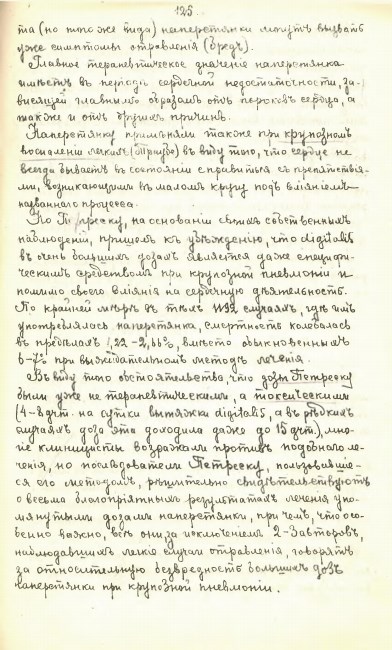 125
та (но того же вида) наперстянки могутъ вызвать
уже симптомы отравленія (бредъ).
Главное терапевтическое значеніе наперстянка
имѣетъ въ періодъ сердечной недостаточности, за-
висящей главнымъ образомъ отъ пороковъ сердца, а
также и отъ другихъ причинъ.
Наперстянку примѣняли также при крупозномъ
воспаленіи легкихъ (Траубе) въ виду того, что сердце не
всегда бываетъ въ состояніи справиться съ препятствія-
ми, возникающими въ маломъ кругу подъ вліяніемъ
названнаго процесса.
Но Петреску, на основаніи своихъ собственныхъ
наблюденій, пришелъ къ убѣжденію, что digitalis
въ очень большихъ дозахъ является даже специфи-
ческимъ средствомъ при крупозной пневмоніи и
помимо своего вліянія на сердечную дѣятельность.
По крайней мѣрѣ въ тѣхъ 1192 случаяхъ, гдѣ имъ
употреблялась наперстянка, смертность колебалась
въ предѣлахъ 1,22-2,66%, вмѣсто обыкновенныхъ
6-7% при выжидательномъ методѣ леченія.
Въ виду того обстоятельства, что дозы Петреску
были уже не терапевтическими, а токсическими
(4-8 grm. на сутки вытяжки digitalis, а въ рѣдкихъ
случаяхъ доза эта доходила даже до 15 grm.), мно-
гіе клиницисты возражали противъ подобнаго ле-
ченія, но послѣдователи Петреску, пользовавшіе-
ся его методомъ, рѣшительно свидѣтельствуютъ
о весьма благопріятныхъ результатахъ леченія упо-
мянутыми дозами наперстянки, при чемъ, что осо-
бенно важно, всѣ они за исключеніемъ 2-3 авторовъ,
наблюдавшихъ легкіе случаи отравленія, говорятъ
за относительную безвредность большихъ дозъ
наперстянки при крупозной пневмоніи.